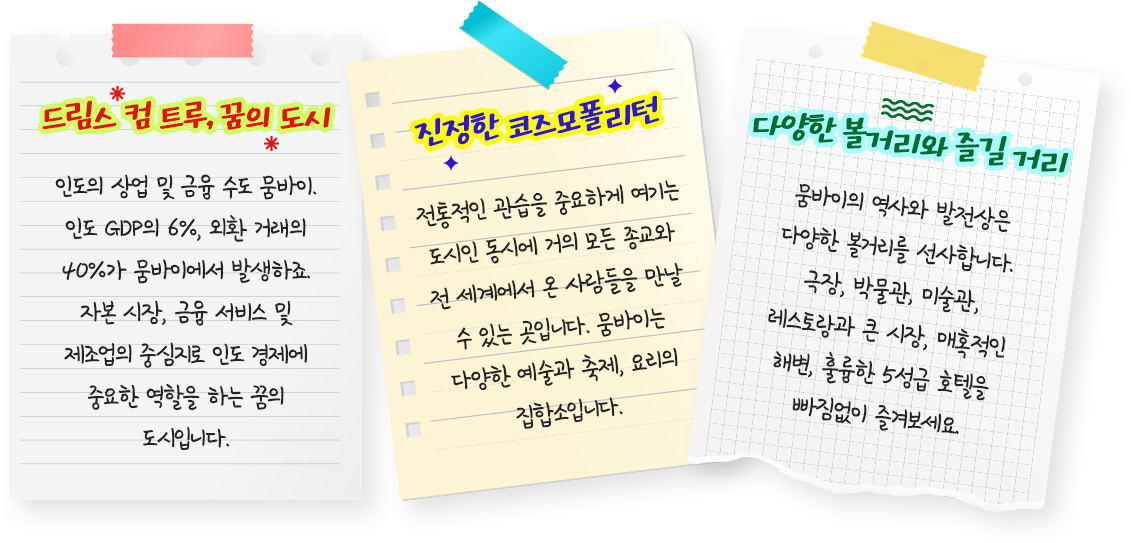 드림스 컴 트루, 꿈의 도시
인도의 상업 및 금융 수도 뭄바이.
인도 GDP의 6%, 외환 거래의
40%가 뭄바이에서 발생하죠.
자본 시장, 금융 서비스 및
제조업의 중심지로 인도 경제에
중요한 역할을 하는 꿈의
도시입니다.
진정한 코즈모폴리턴
전통적인 관습을 중요하게 여기는
도시인 동시에 거의 모든 종교와
전 세계에서 온 사람들을 만날
수 있는 곳입니다. 뭄바이는
다양한 예술과 축제, 요리의
집합소입니다.
다양한 볼거리와 즐길 거리
뭄바이의 역사와 발전상은
다양한 볼거리를 선사합니다.
극장, 박물관, 미술관,
레스토랑과 큰 시장, 매혹적인
해변, 훌륭한 5성급 호텔을
빠짐없이 즐겨보세요.